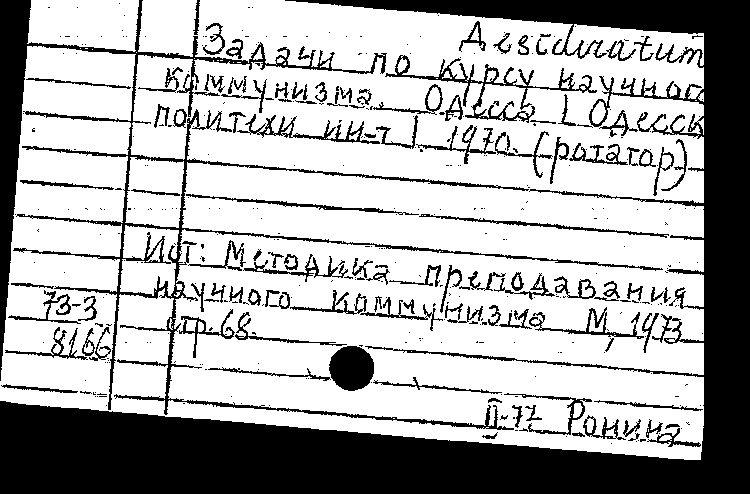 Desiduratum
Задачи по курсу научного
коммунизма. Одесса. | Одесск
политехн ин-т |. 1970. (ротатор)
Ист: Методика преподавания
научного коммунизма М, 1973
стр. 68.
73-3
8166
II-77 Ронина